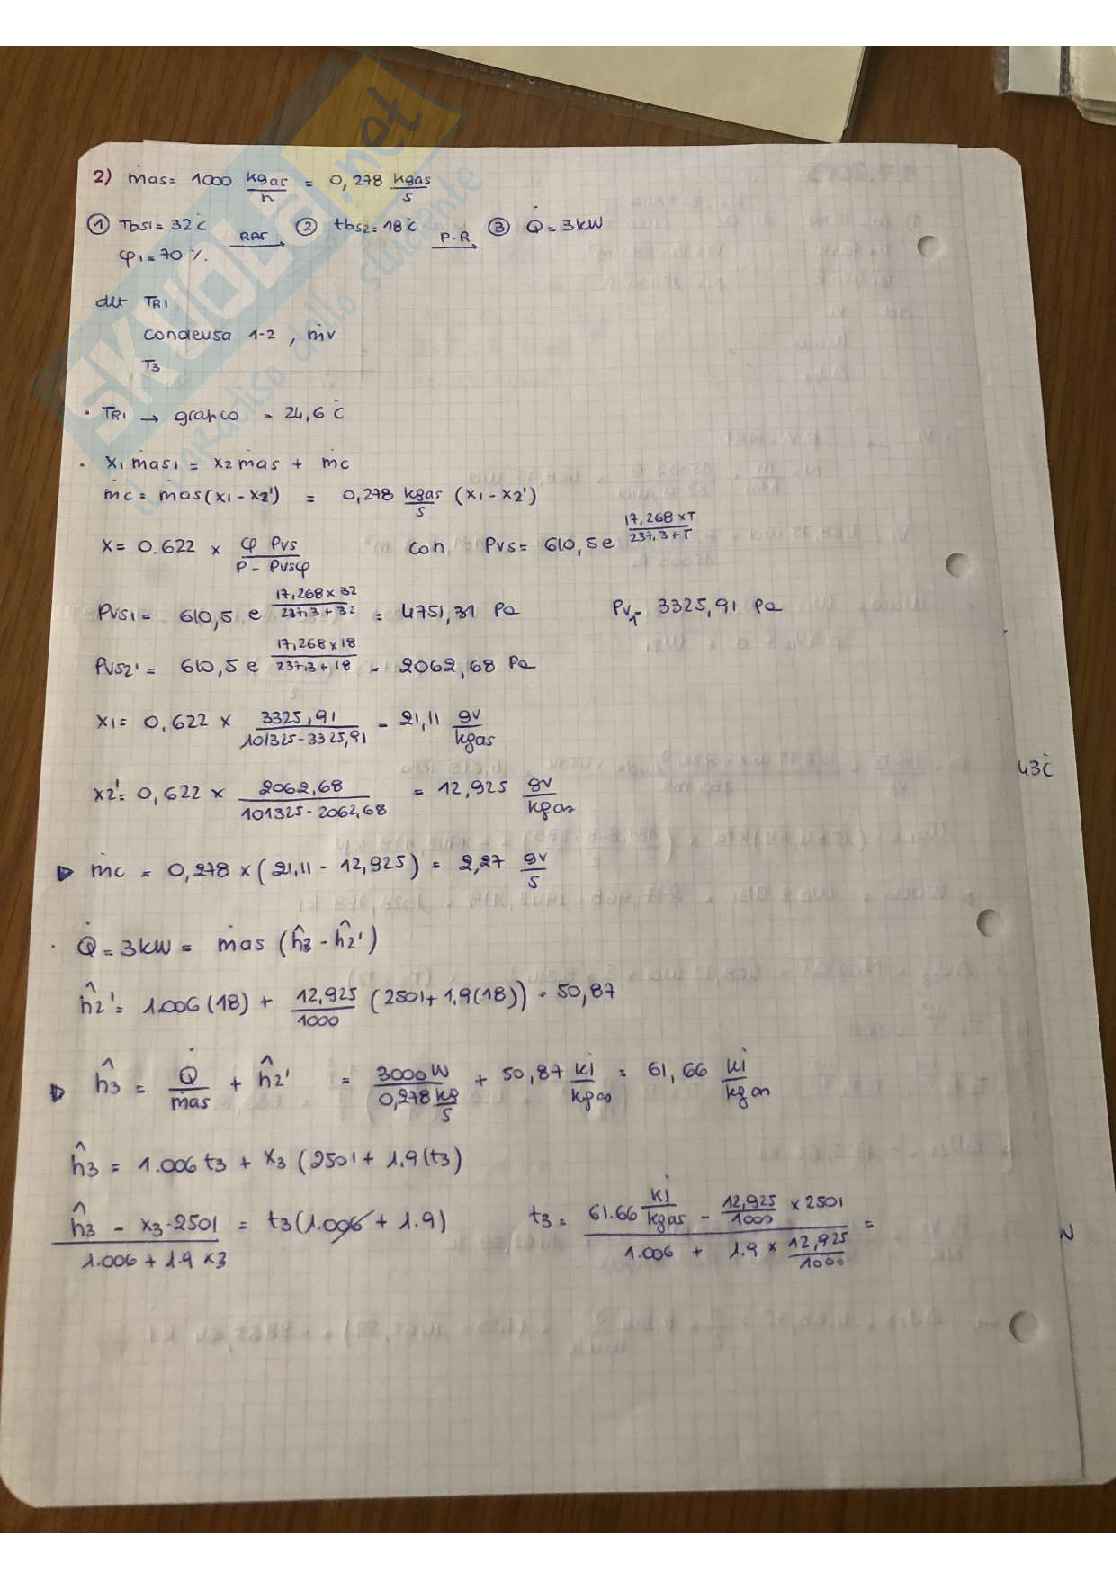 2) ṁas= 1000 kgas/h = 0,278 kgas/s
① Tbs1= 32°C RAF→ ② tbs2= 18°C P.R→ ③ Q̇= 3kW
φ1= 70 %.
dt TR1
condensa 1-2 , ṁv
T3
• TR1 → grafico = 24,6°C
• x1 ṁas1 = x2 ṁas + ṁc
ṁc= ṁas(x1-x2') = 0,278 kgas/s (x1-x2')
X= 0.622 x φ Pvs / P - Pvsφ con Pvs= 610,5 e 17,268 xT / 237,3+T
Pvs1= 610,5 e 17,268 x 32 / 237,3 + 32 = 4751,31 Pa Pv1= 3325,91 Pa
Pvs2'= 610,5 e 17,268 x 18 / 237,3 + 18 = 2062,68 Pa
x1= 0,622 x 3325,91 / 101325-3325,91 = 21,11 gv/kgas
x2'= 0,622 x 2062,68 / 101325-2062,68 = 12,925 gv/kgas
43°C
▷ ṁc = 0,278 x (21,11 - 12,925) = 2,27 gv/s
• Q̇= 3kW = ṁas (ĥ3 - ĥ2')
ĥ2'= 1.006 (18) + 12,925/1000 (2501+ 1.9(18)) = 50,87
▷ ĥ3 = Q̇/ṁas + ĥ2' = 3000W / 0,278 kg/s + 50,87 kj/kgas = 61,66 kj/kgas
ĥ3 = 1.006 t3 + x3 (2501+ 1.9(t3)
ĥ3 - x3·2501 / 1.006 + 1.9 x3 = t3(1.006 + 1.9) t3 = 61.66 kj/kgas - 12,925/1000 x 2501 / 1.006 + 1.9 x 12,925/1000 =
N
SKUOLA.net
il paradiso dello studente